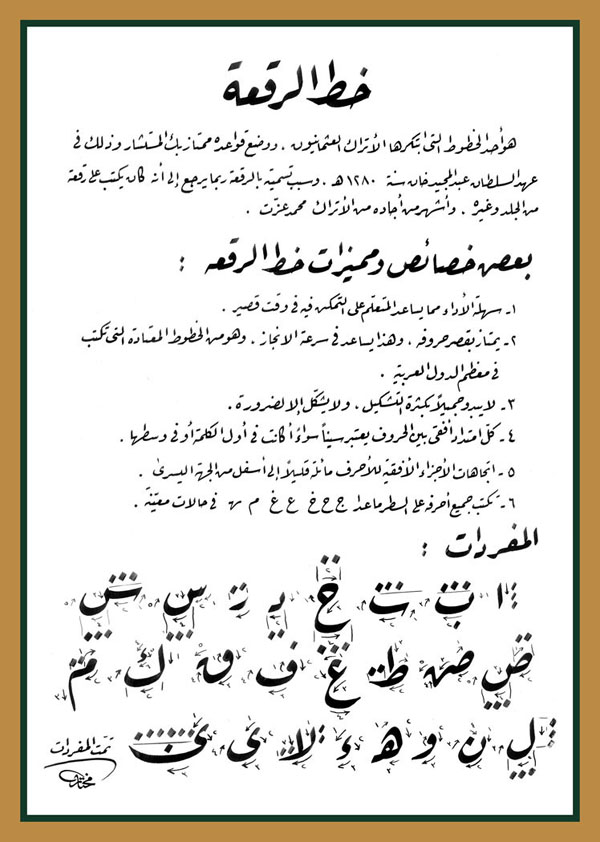 خط الرقعة
هو أحد الخطوط التى ابتكرها الأتراك العثمانيون . ووضع قواعده ممتاز بك المستشار وذلك فى
عهد السلطان عبد المجيد خان سنة ١٢٨٠ هـ . وسبب تسميته بالرقعة ربما يرجع إلى أنه كان يكتب على رقعة
من الجلد وغيره . وأشهر من أجاده من الأتراك محمد عزت .
بعض خصائص ومميزات خط الرقعه :
١- سهلة الأداء مما يساعد المتعلم على التمكن فيه فى وقت قصير .
٢- يمتاز بقصر حروفه . وهذا يساعد فى سرعة الانجاز . وهو من الخطوط المعتادة التى تكتب
فى معظم الدول العربية .
٣- لا يبدو جميلاً بكثرة التشكيل . ولا يشكّل إلا لضرورة .
٤- كل امتداد أفقى بين الحروف يعتبر سيناً سواءً أكانت فى أول الكلمة أو فى وسطها .
٥- اتجاهات الأجزاء الأفقية للأحرف مائلة قليلاً إلى أسفل من الجهة اليسرى .
٦- تكتب جميع أحرفه على السطر ما عدا ج ح خ ع غ م ـهـ فى حالات معيّنة .
المفردات :
ا ب ت خ د ر س ش
ض صه ط غ ف ق ك م
ل ن و هـ ء لا ى ئ
تمت المفردات
مختار